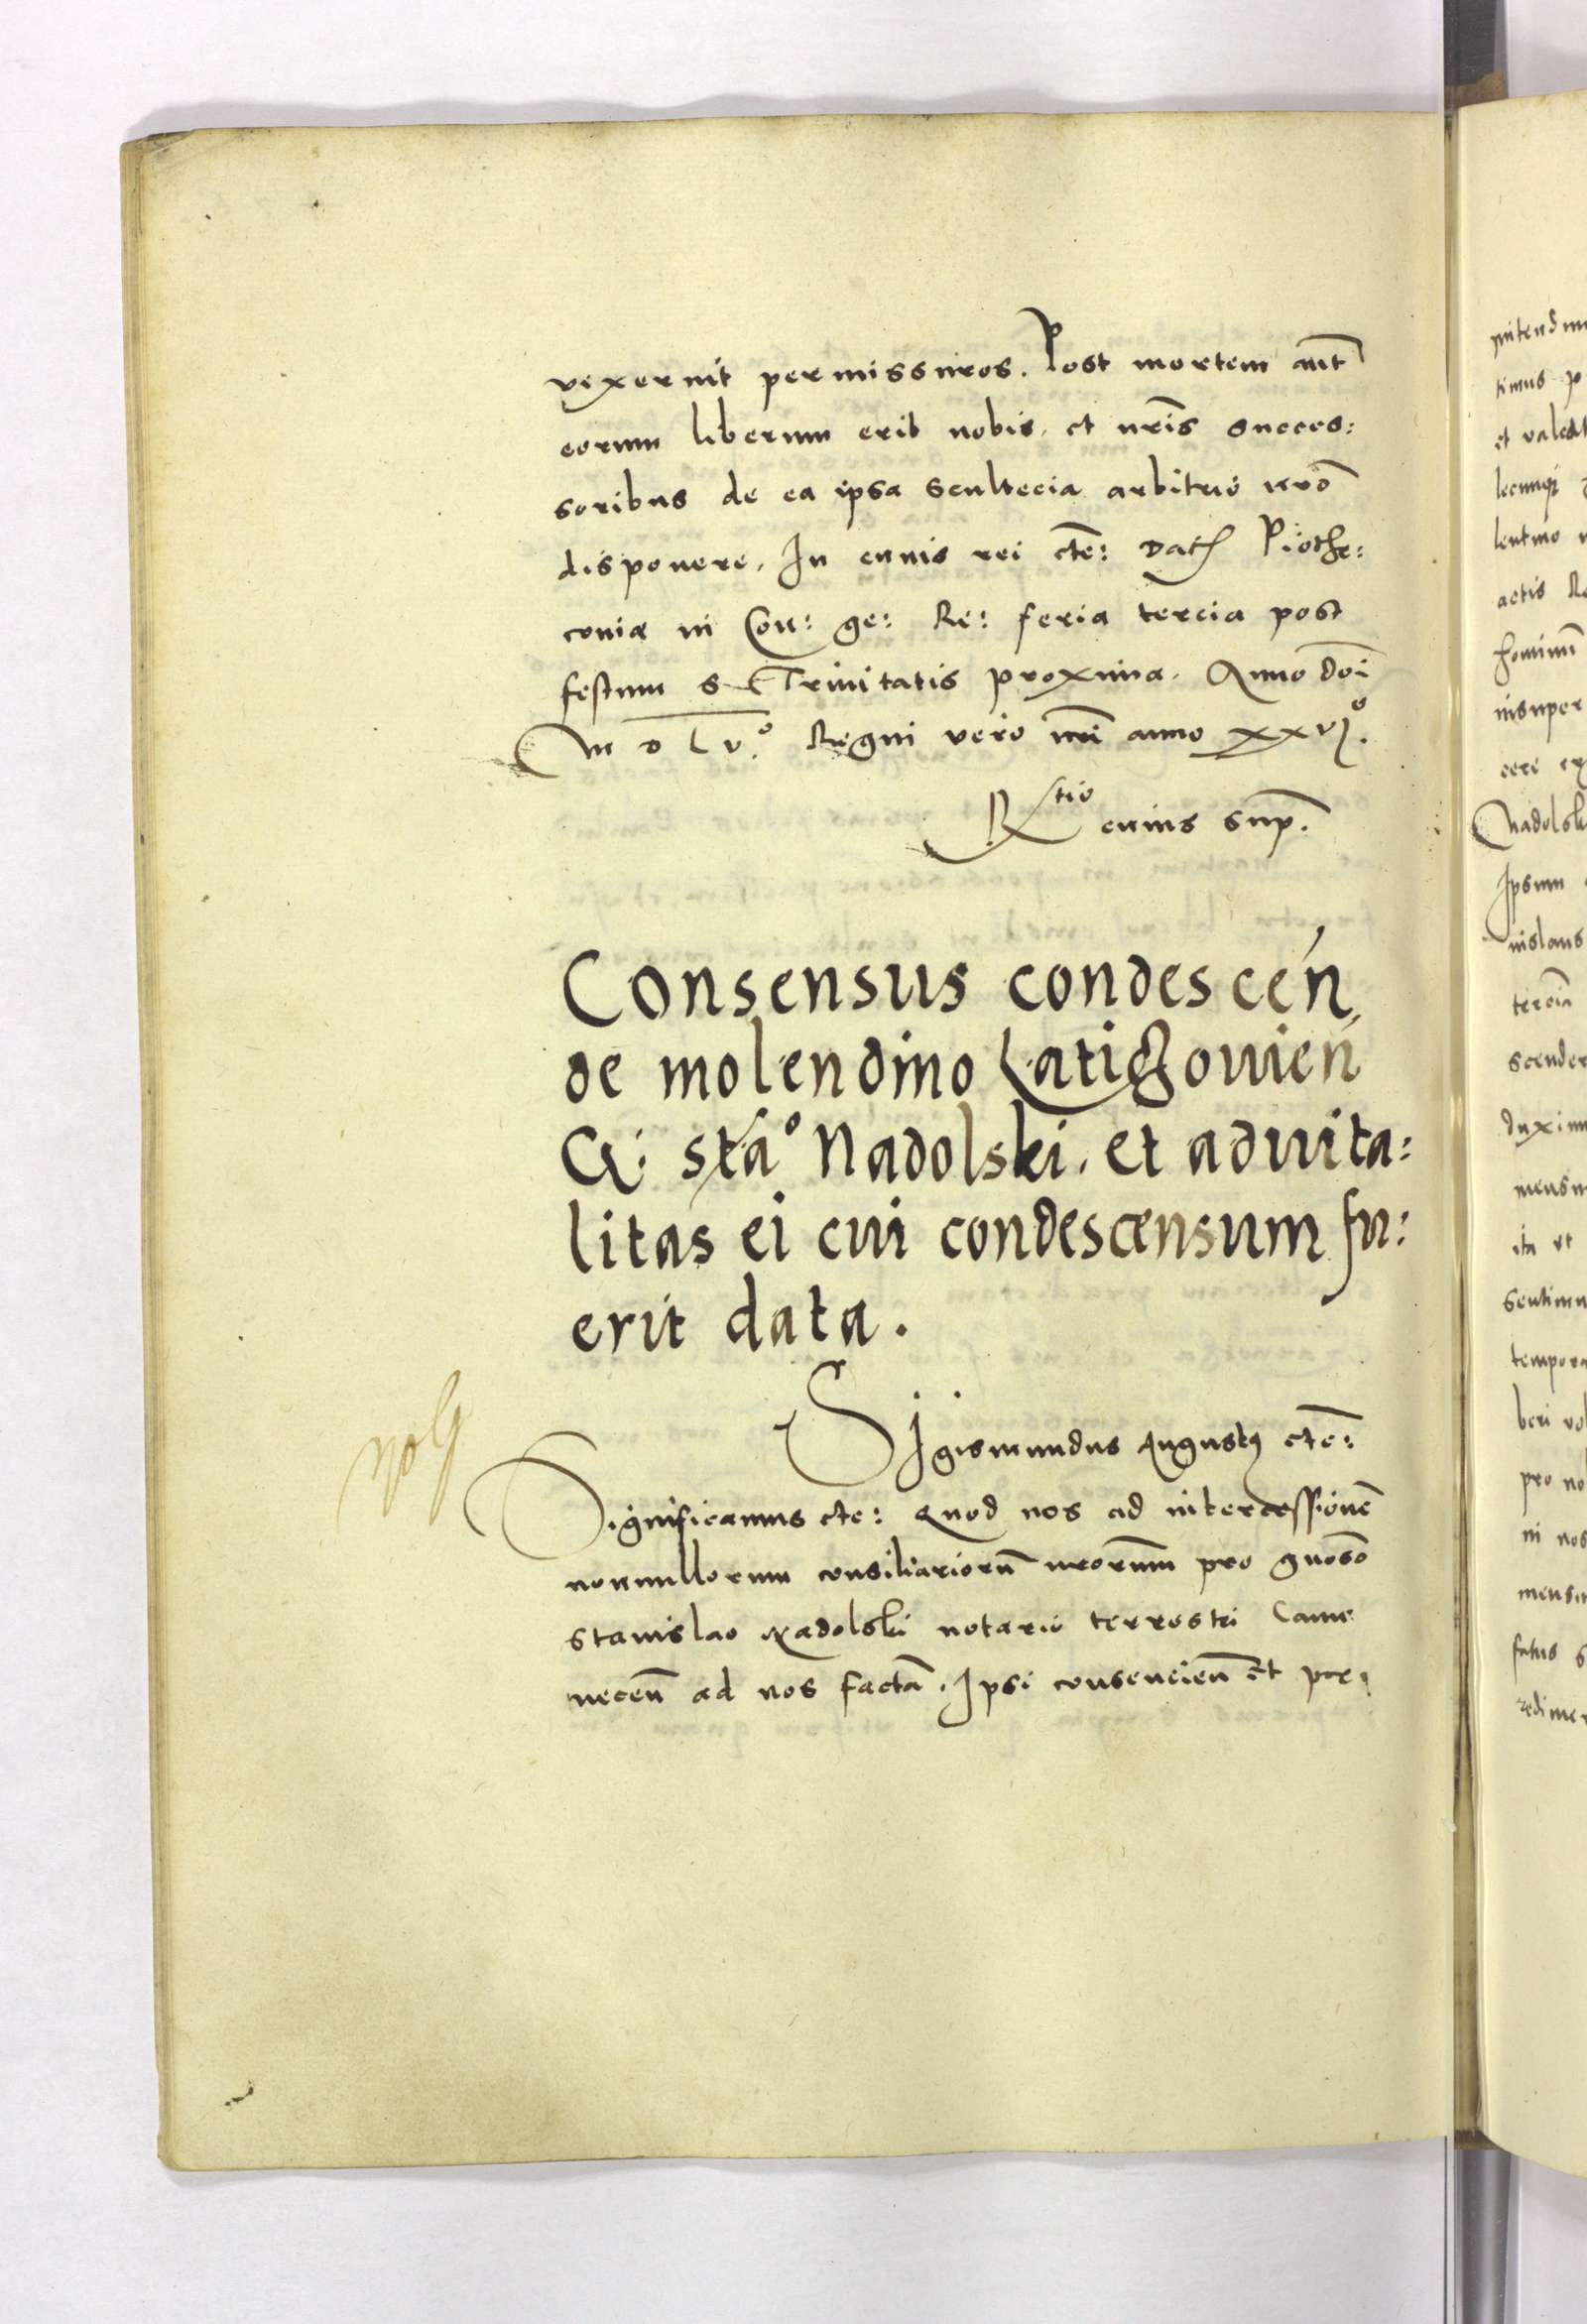 vexerint permissuros. Post mortem aūt
eorum liberum erit nobis, et nr̄is succes:
soribus de ea ipsa scultecia arbitrio nr̄o
disponere. In cuius rei etc̄: Dat Piothr:
coniæ in Con: ge: Re: feria tercia post
festum S. Trinitatis proxima. Anno Dn̄i
M D L V.º Regni vero nr̄i anno XXVIº.
Rtio cuius sup̄.
Consensus condescen̄
de molendino Latigowien̄
G. Stāº Nadolski. et aduita:
litas ei cui condescensum fu:
erit data.
nolg
Sigismundus Augustus etc̄:
Significamus etc: Quod nos ad intercessionē
nonnullorum consiliariorū nr̄orum pro gnoso
Stanislao Nadolski notario terrestri Came
necen̄ ad nos factā. Ipsi consencien̄ et per
mitendum
timus p
et valeat
lecunq
lentino
actis Re
hominū
insuper
cere ex
Nadolski
Ipsum
nislaus
terciā
scender
duximu
mensu
ita ut
sentimu
tempora
beri vol
pro no
in nos
mensu
fatus S
redimer